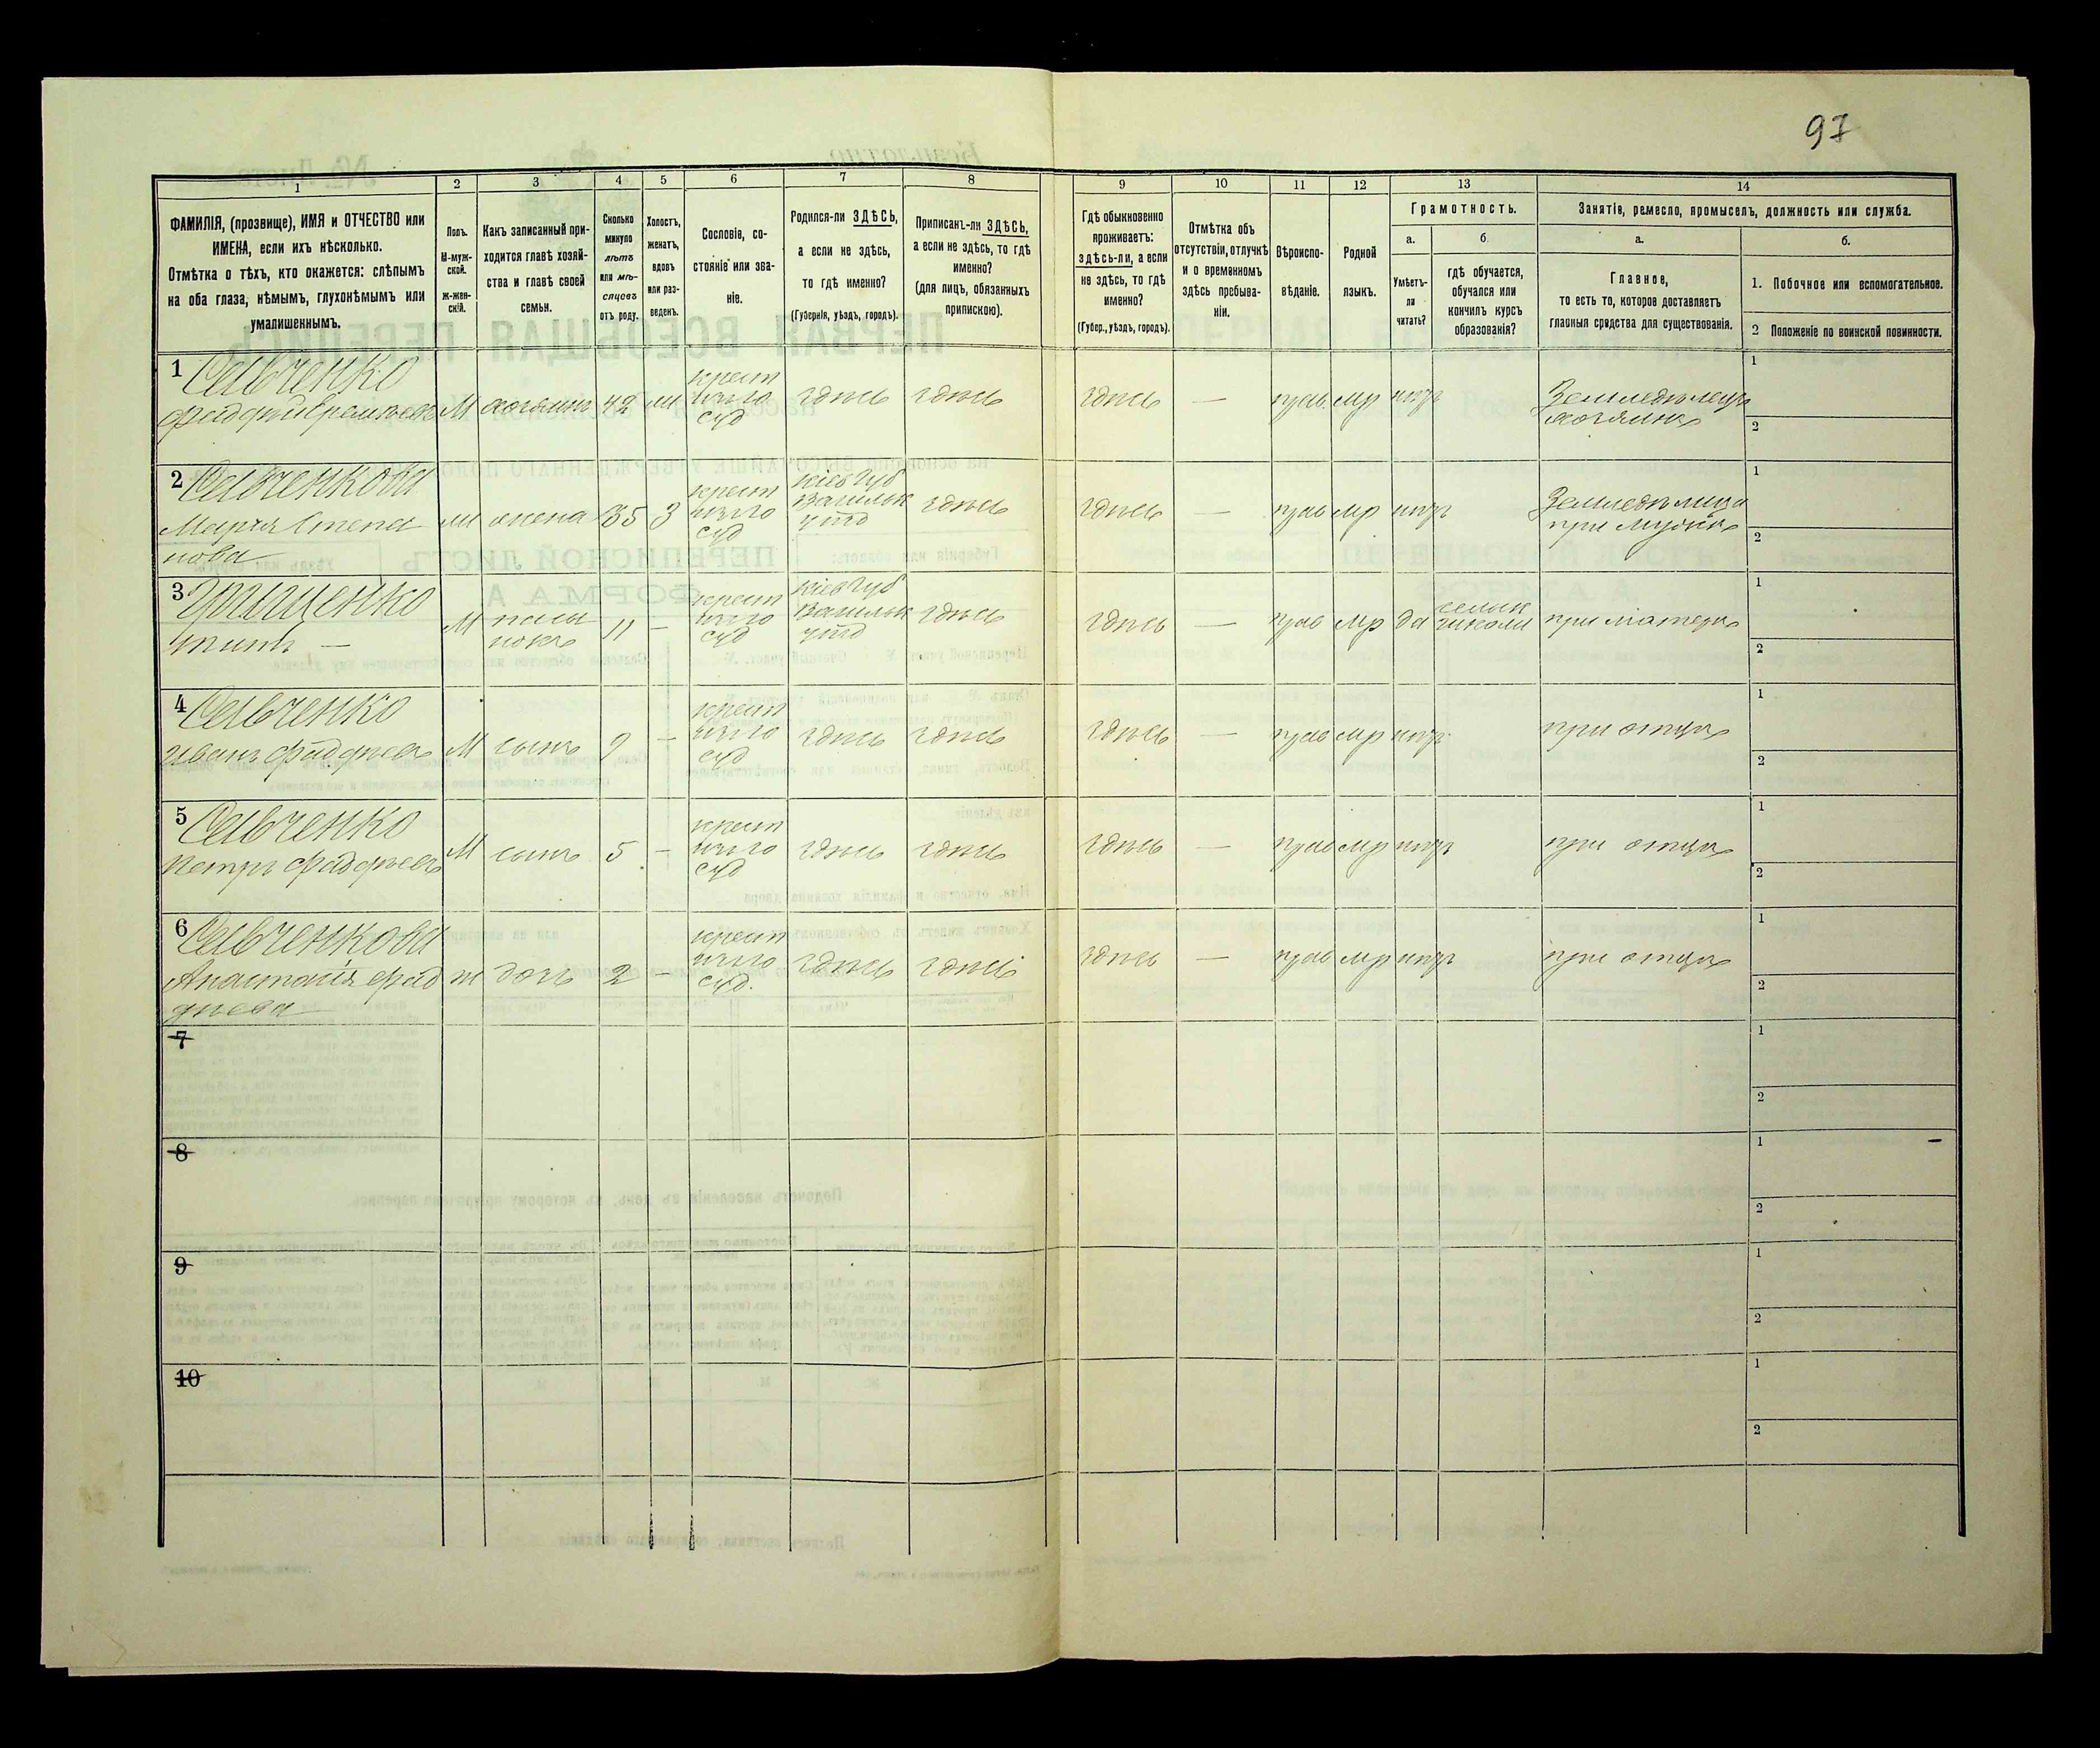 97
1
2
3
4
5
6
7
8
9
10
11
12
13
14
ФАМИЛІЯ, (прозвище), ИМЯ и ОТЧЕСТВО или
ИМЕНА, если ихъ нѣсколько.
Отмѣтка о тѣхъ, кто окажется: слѣпымъ
на оба глаза, нѣмымъ, глухонѣмымъ или
умалишеннымъ.
Полъ.
М-муж-
ской.
Ж-жен-
скій.
Какъ записанный при-
ходится главѣ хозяй-
ства и главѣ своей
семьи.
Сколько
минуло
лѣтъ
или мѣ-
сяцевъ
отъ роду.
Холостъ,
женатъ,
вдовъ
или раз-
веденъ.
Сословіе, со-
стояніе или зва-
ніе.
Родился-ли ЗДѢСЬ,
а если не здѣсь,
то гдѣ именно?
(Губернія, уѣздъ, городъ).
Приписанъ-ли ЗДѢСЬ,
а если не здѣсь, то гдѣ
именно?
(для лицъ, обязанныхъ
припискою).
Гдѣ обыкновенно
проживаетъ:
здѣсь-ли, а если
не здѣсь, то гдѣ
именно?
(Губер., уѣздъ, городъ).
Отмѣтка объ
отсутствіи, отлучкѣ
и о временномъ
здѣсь пребыва-
ніи.
Вѣроиспо-
вѣданіе.
Родной
языкъ.
Грамотность.
а.
Умѣетъ-
ли
читать?
б
гдѣ обучается,
обучался или
кончилъ курсъ
образованія?
Занятіе, ремесло, промыселъ, должность или служба.
а.
Главное,
то есть то, которое доставляетъ
главныя средства для существованія.
б.
1. Побочное или вспомогательное.
2 Положеніе по воинской повинности.
1 Савченко
М хозяинъ 42
крест
здѣсь здѣсь здѣсь — прав. мр нѣтъ
Земледѣлецъ
хозяинъ
1
2
2 Савченкова
Марія Степа
нова
жена 35 3
крест
Кіев Губ
Васильк
уѣзд
здѣсь здѣсь — прав мр нѣтъ
при мужѣ
1
2
3 Грищенко
М
11 —
крест
Кіев Губ
Васильк
уѣзд
здѣсь здѣсь — прав мр да
школи
при матери
1
2
4 Савченко
Иванъ Фаддѣевъ М сынъ 9 —
крест
здѣсь здѣсь здѣсь — прав мр нѣтъ при отцѣ
1
2
5 Савченко
Петръ Фаддѣевъ М сынъ 5 —
крест
здѣсь здѣсь здѣсь — прав мр нѣтъ при отцѣ
1
2
6 Савченкова
Анастасія Фад
дѣева
ж дочь 2 —
крест
здѣсь здѣсь здѣсь — прав мр нѣтъ при отцѣ
1
2
7
1
2
8
1
2
9
1
2
10
1
2